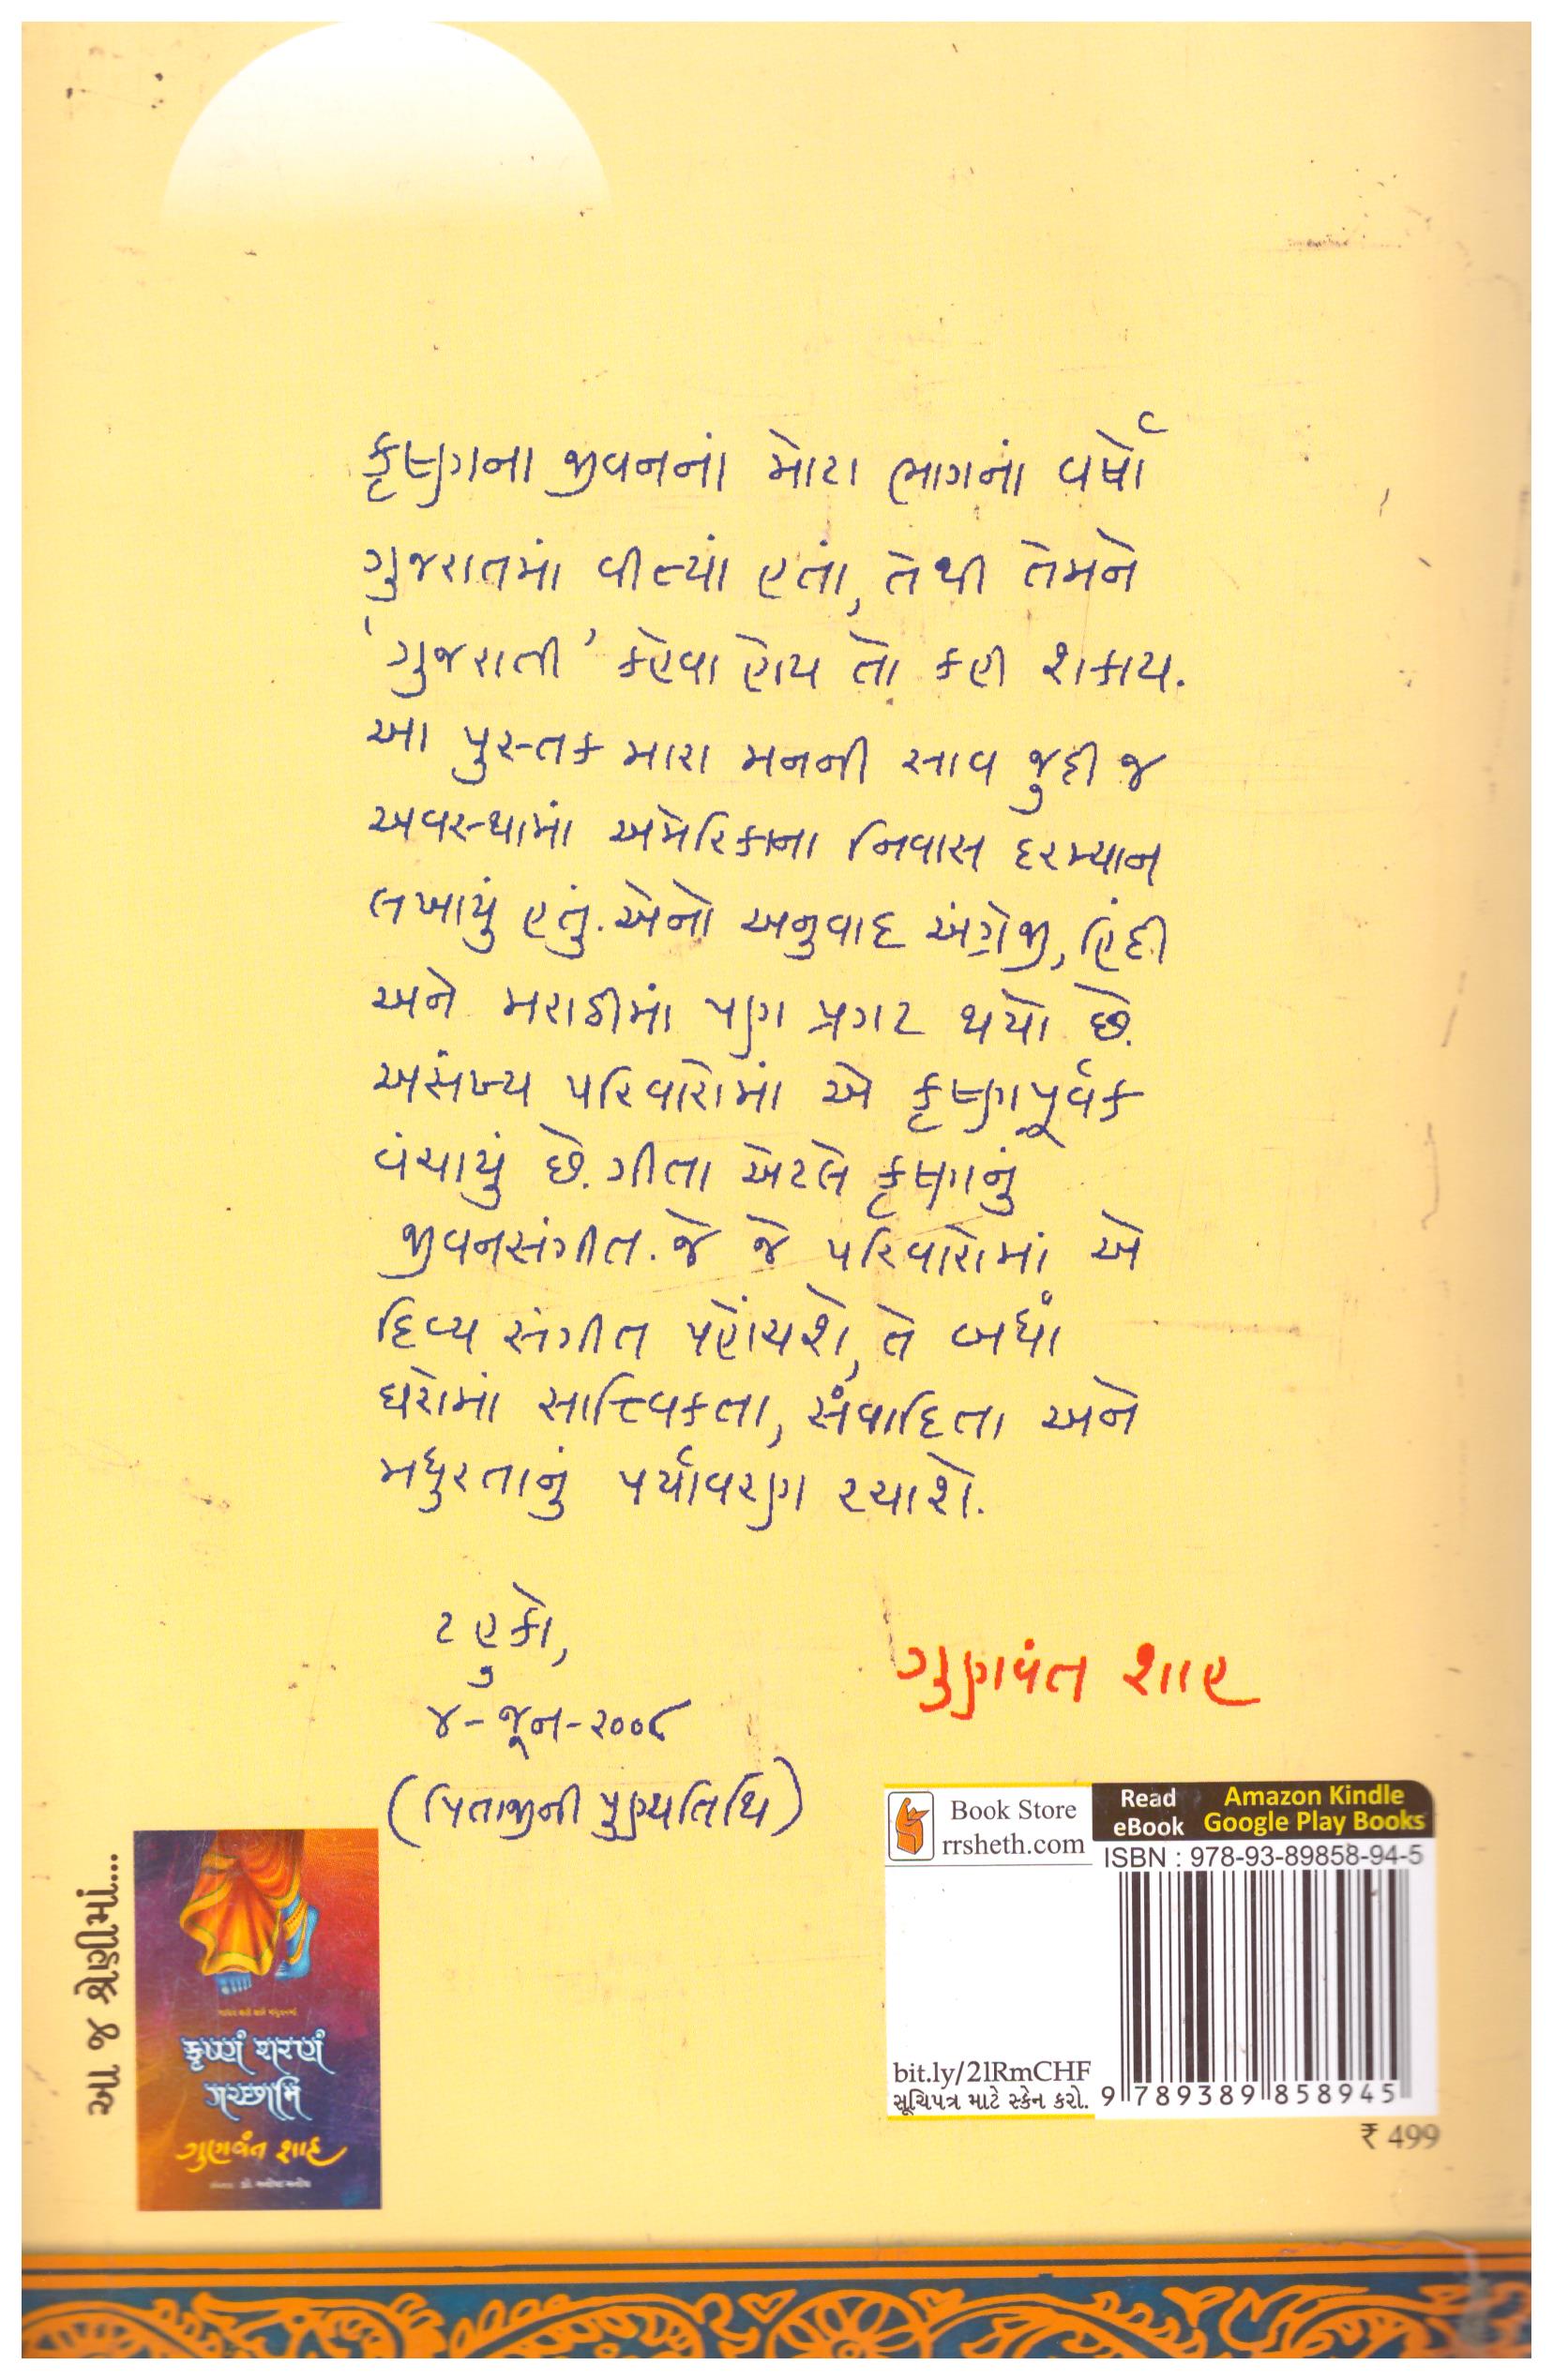 કૃષ્ણના જીવનનાં મોટા ભાગનાં વર્ષો
ગુજરાતમાં વીત્યાં હતાં, તેથી તેમને
‘ગુજરાતી’ કહેવા હોય તો કહી શકાય.
આ પુસ્તક મારા મનની સાવ જુદી જ
અવસ્થામાં અમેરિકાના નિવાસ દરમ્યાન
લખાયું હતું. એનો અનુવાદ અંગ્રેજી, હિંદી
અને મરાઠીમાં પણ પ્રગટ થયો છે.
અસંખ્ય પરિવારોમાં એ કૃષ્ણપૂર્વક
વંચાયું છે. ગીતા એટલે કૃષ્ણનું
જીવનસંગીત. જે જે પરિવારોમાં એ
દિવ્ય સંગીત પહોંચશે, તે બધાં
ઘરોમાં સાત્ત્વિકતા, સંવાદિતા અને
મધુરતાનું પર્યાવરણ રચાશે.
ટહુકો,
૪-જૂન-૨૦૦૮
(પિતાજીની પુણ્યતિથિ)
ગુણવંત શાહ
આ જ શ્રેણીમાં...
કૃષ્ણં શરણં
ગચ્છામિ
ગુણવંત શાહ
Book Store
rrsheth.com
Read eBook
Amazon Kindle
Google Play Books
ISBN : 978-93-89858-94-5
bit.ly/2lRmCHF
સૂચિપત્ર માટે સ્કેન કરો.
9 789389 858945
₹ 499